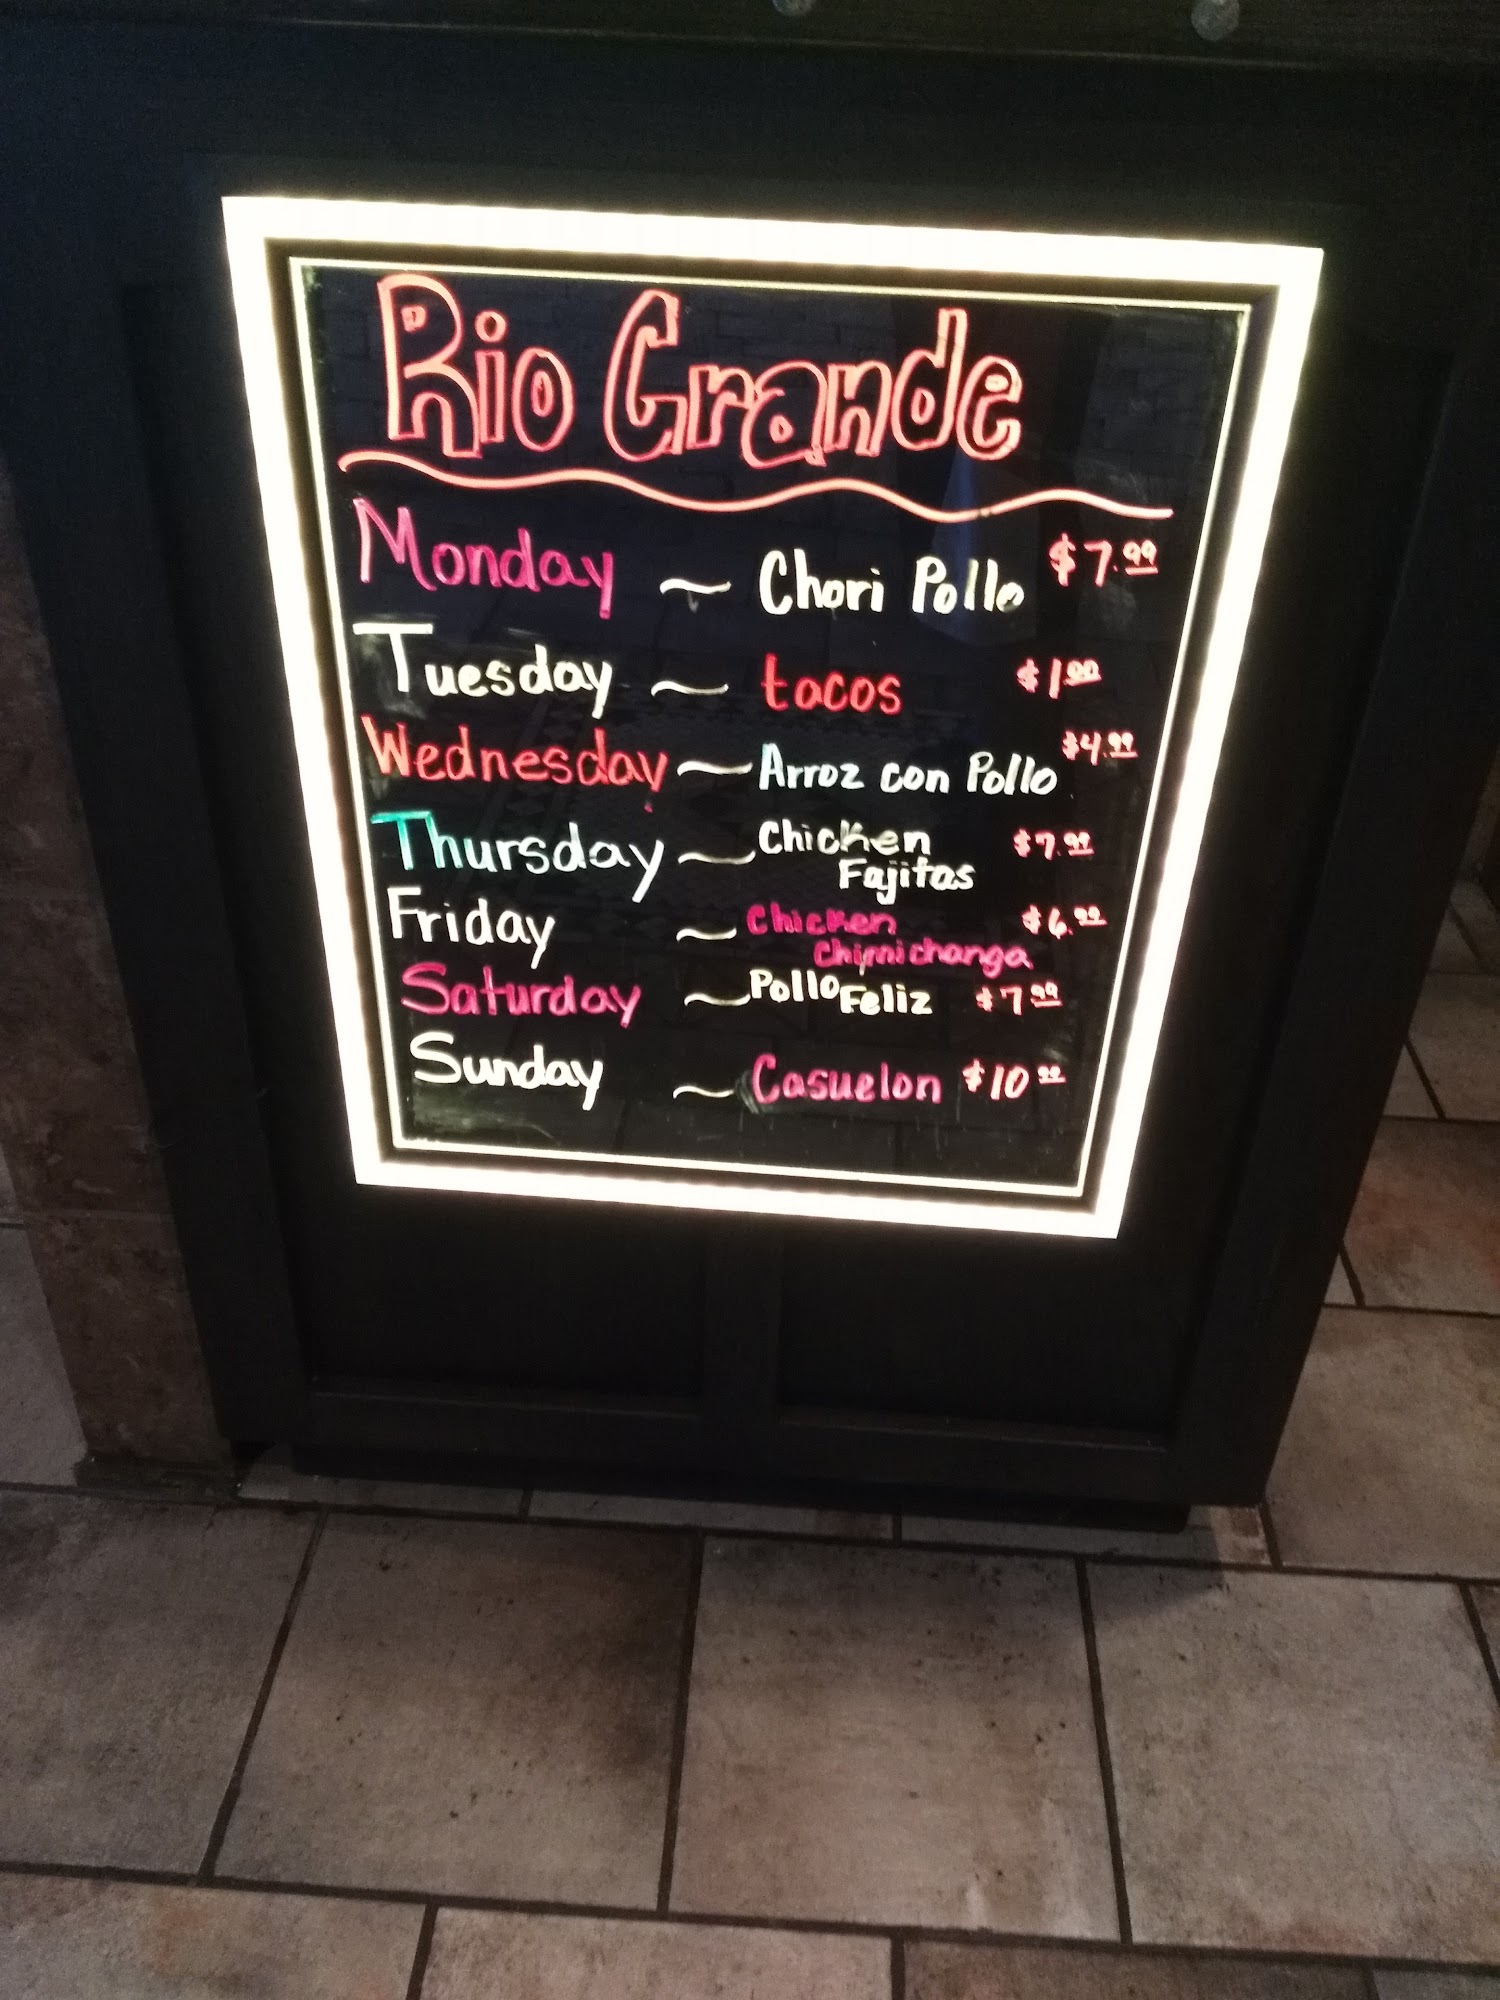 Rio Grande
Monday ~ Chori Pollo $7.99
Tuesday ~ tacos $1.00
Wednesday ~ Arroz con Pollo $4.99
Thursday ~ Chicken $7.99
Fajitas
Friday ~ Chicken $6.99
Chimichanga
Saturday ~ Pollo Feliz $7.99
Sunday ~ Casuelon $10.99